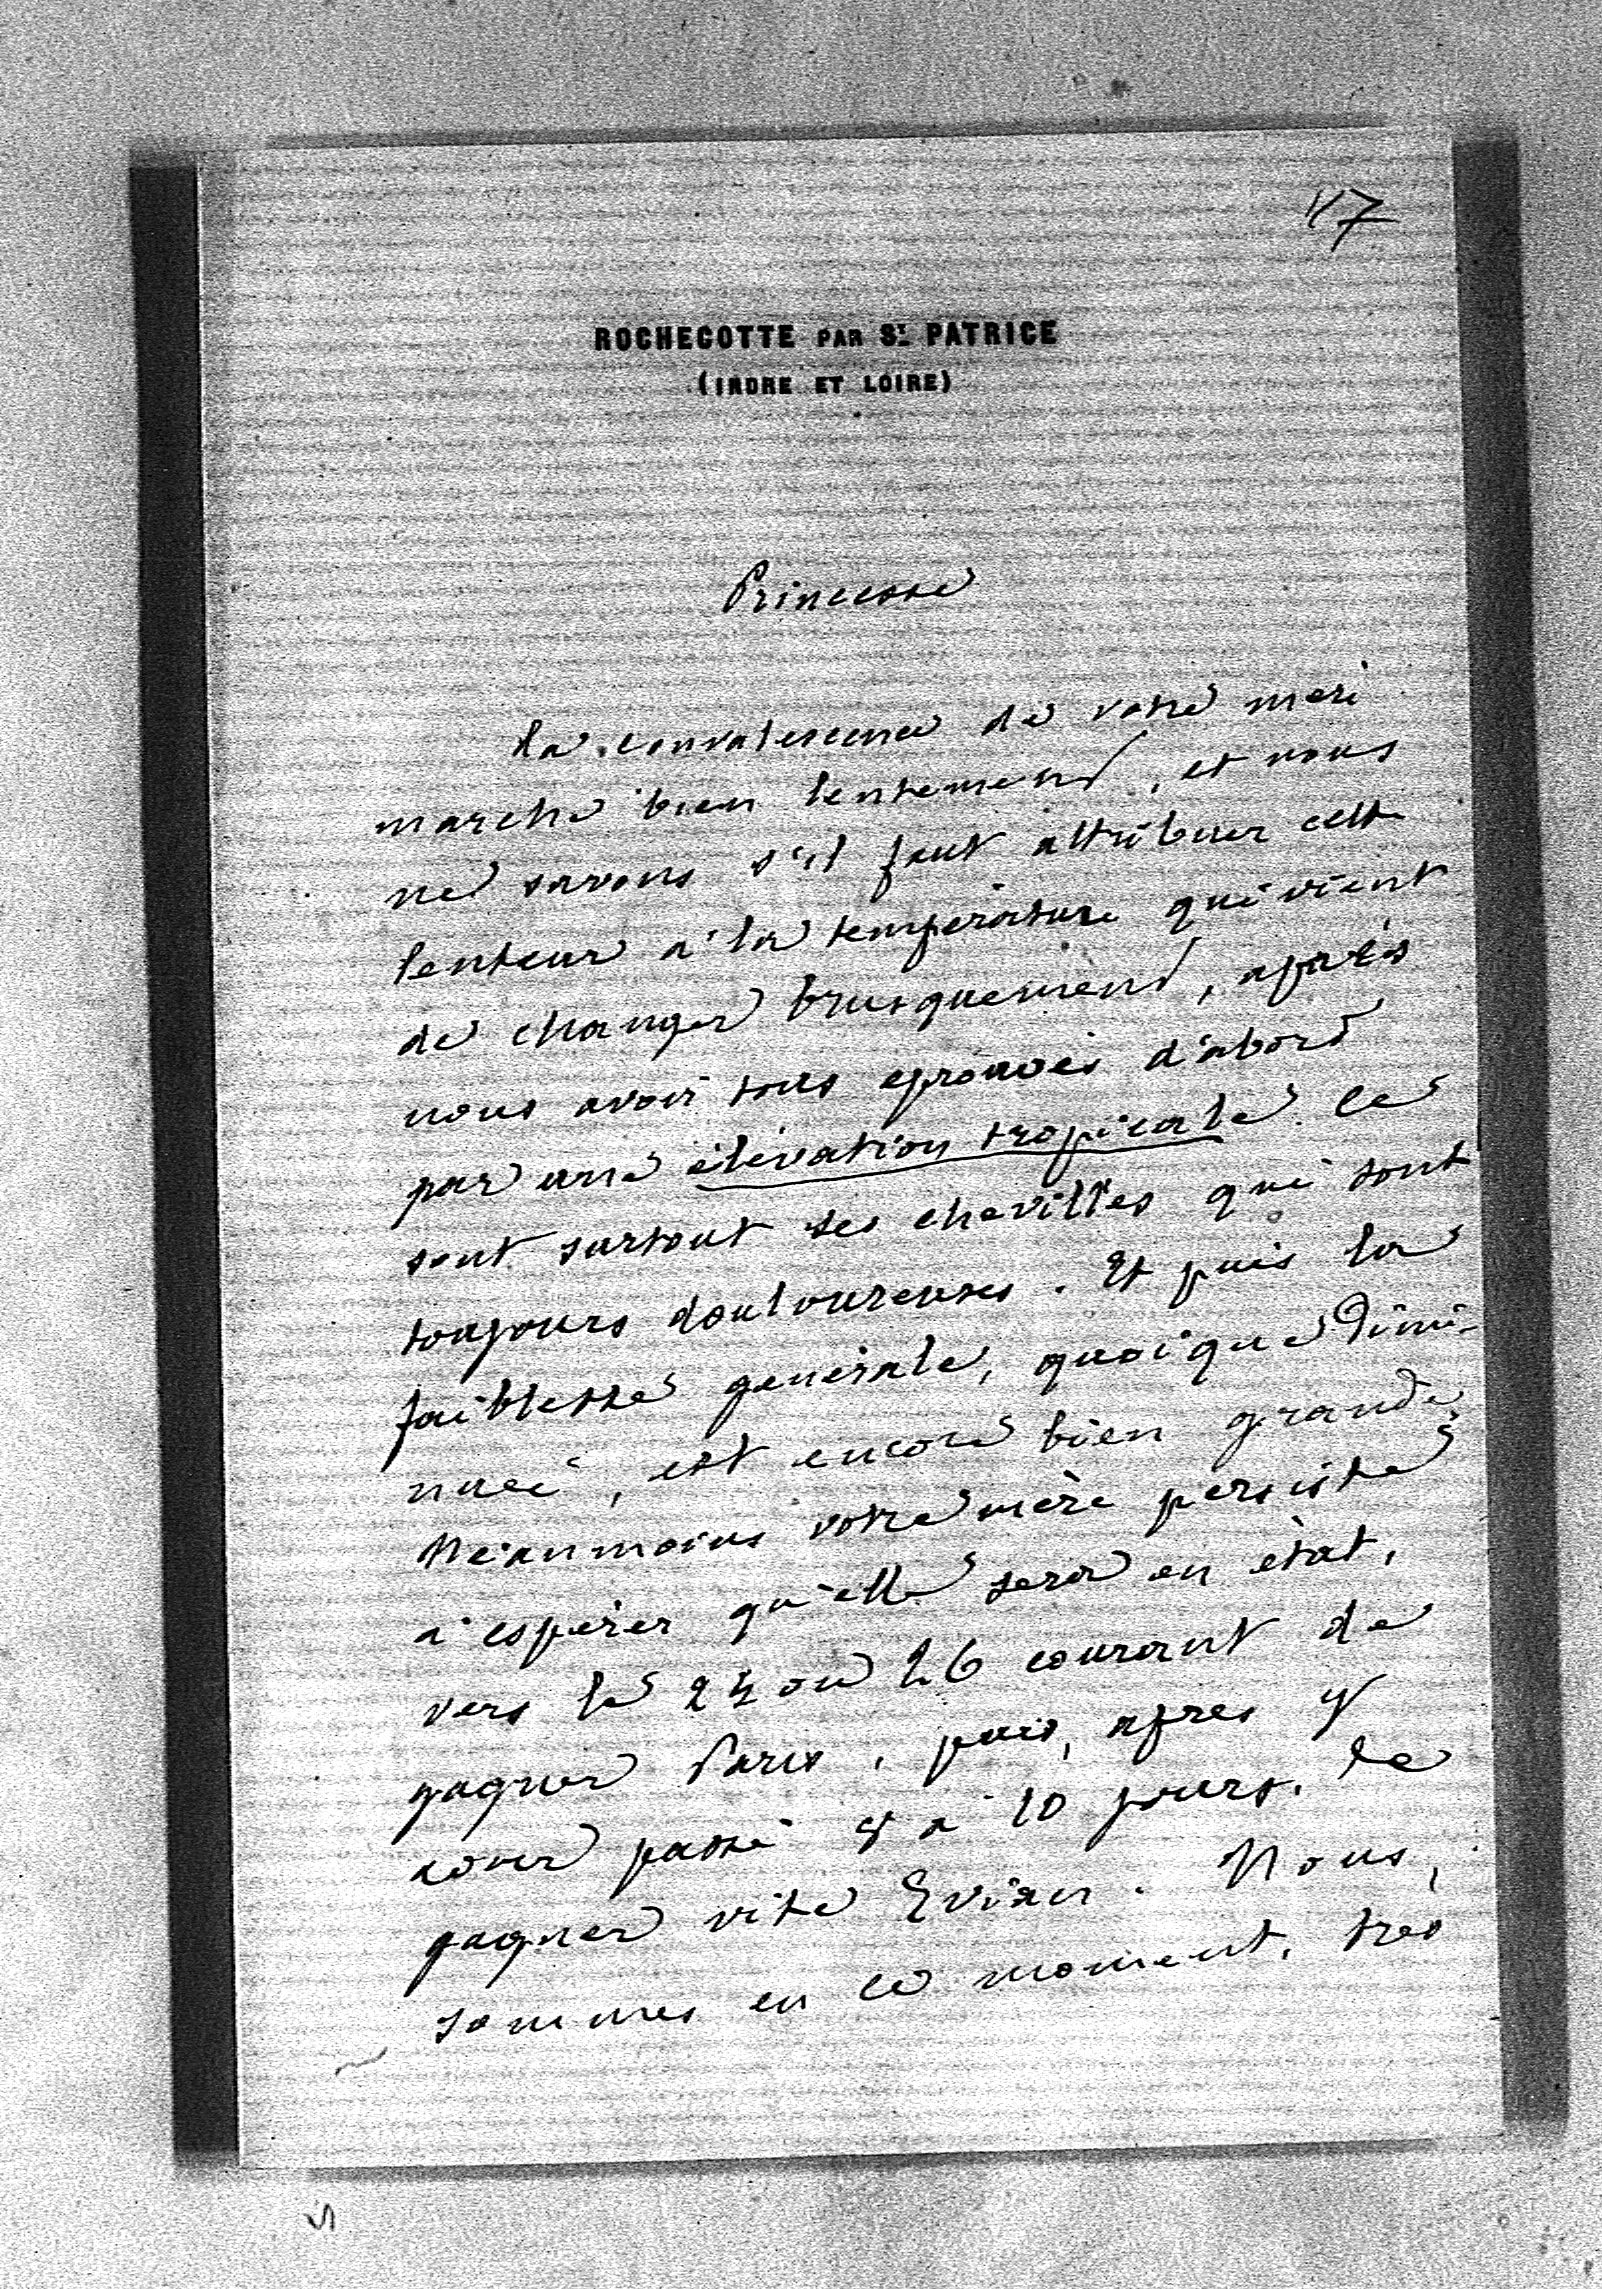 47
ROCHECOTTE PAR ST PATRICE
(INDRE ET LOIRE)
Princesse
La convalescence de votre mèri
marche bien lentement, et nous
ne savons s'il faut attribuer cette
lenteur à la température qui vient
de changer brusquement, après
nous avoir tous eprouvés d'abord
par une élévation tropicale. Ce
sont surtout ses chevilles qui sont
toujours douloureuses. Et puis la
faiblesse générale, quoique dimi-
nuée, est encore bien grande.
Néanmoins votre mère persiste
à espérer qu'elle sera en état,
vers le 24 ou 26 courant de
gagner Paris, puis, apres y
avoir passé 8 à 10 jours, de
gagner vite Evian. Nous,
sommes en ce moment, très